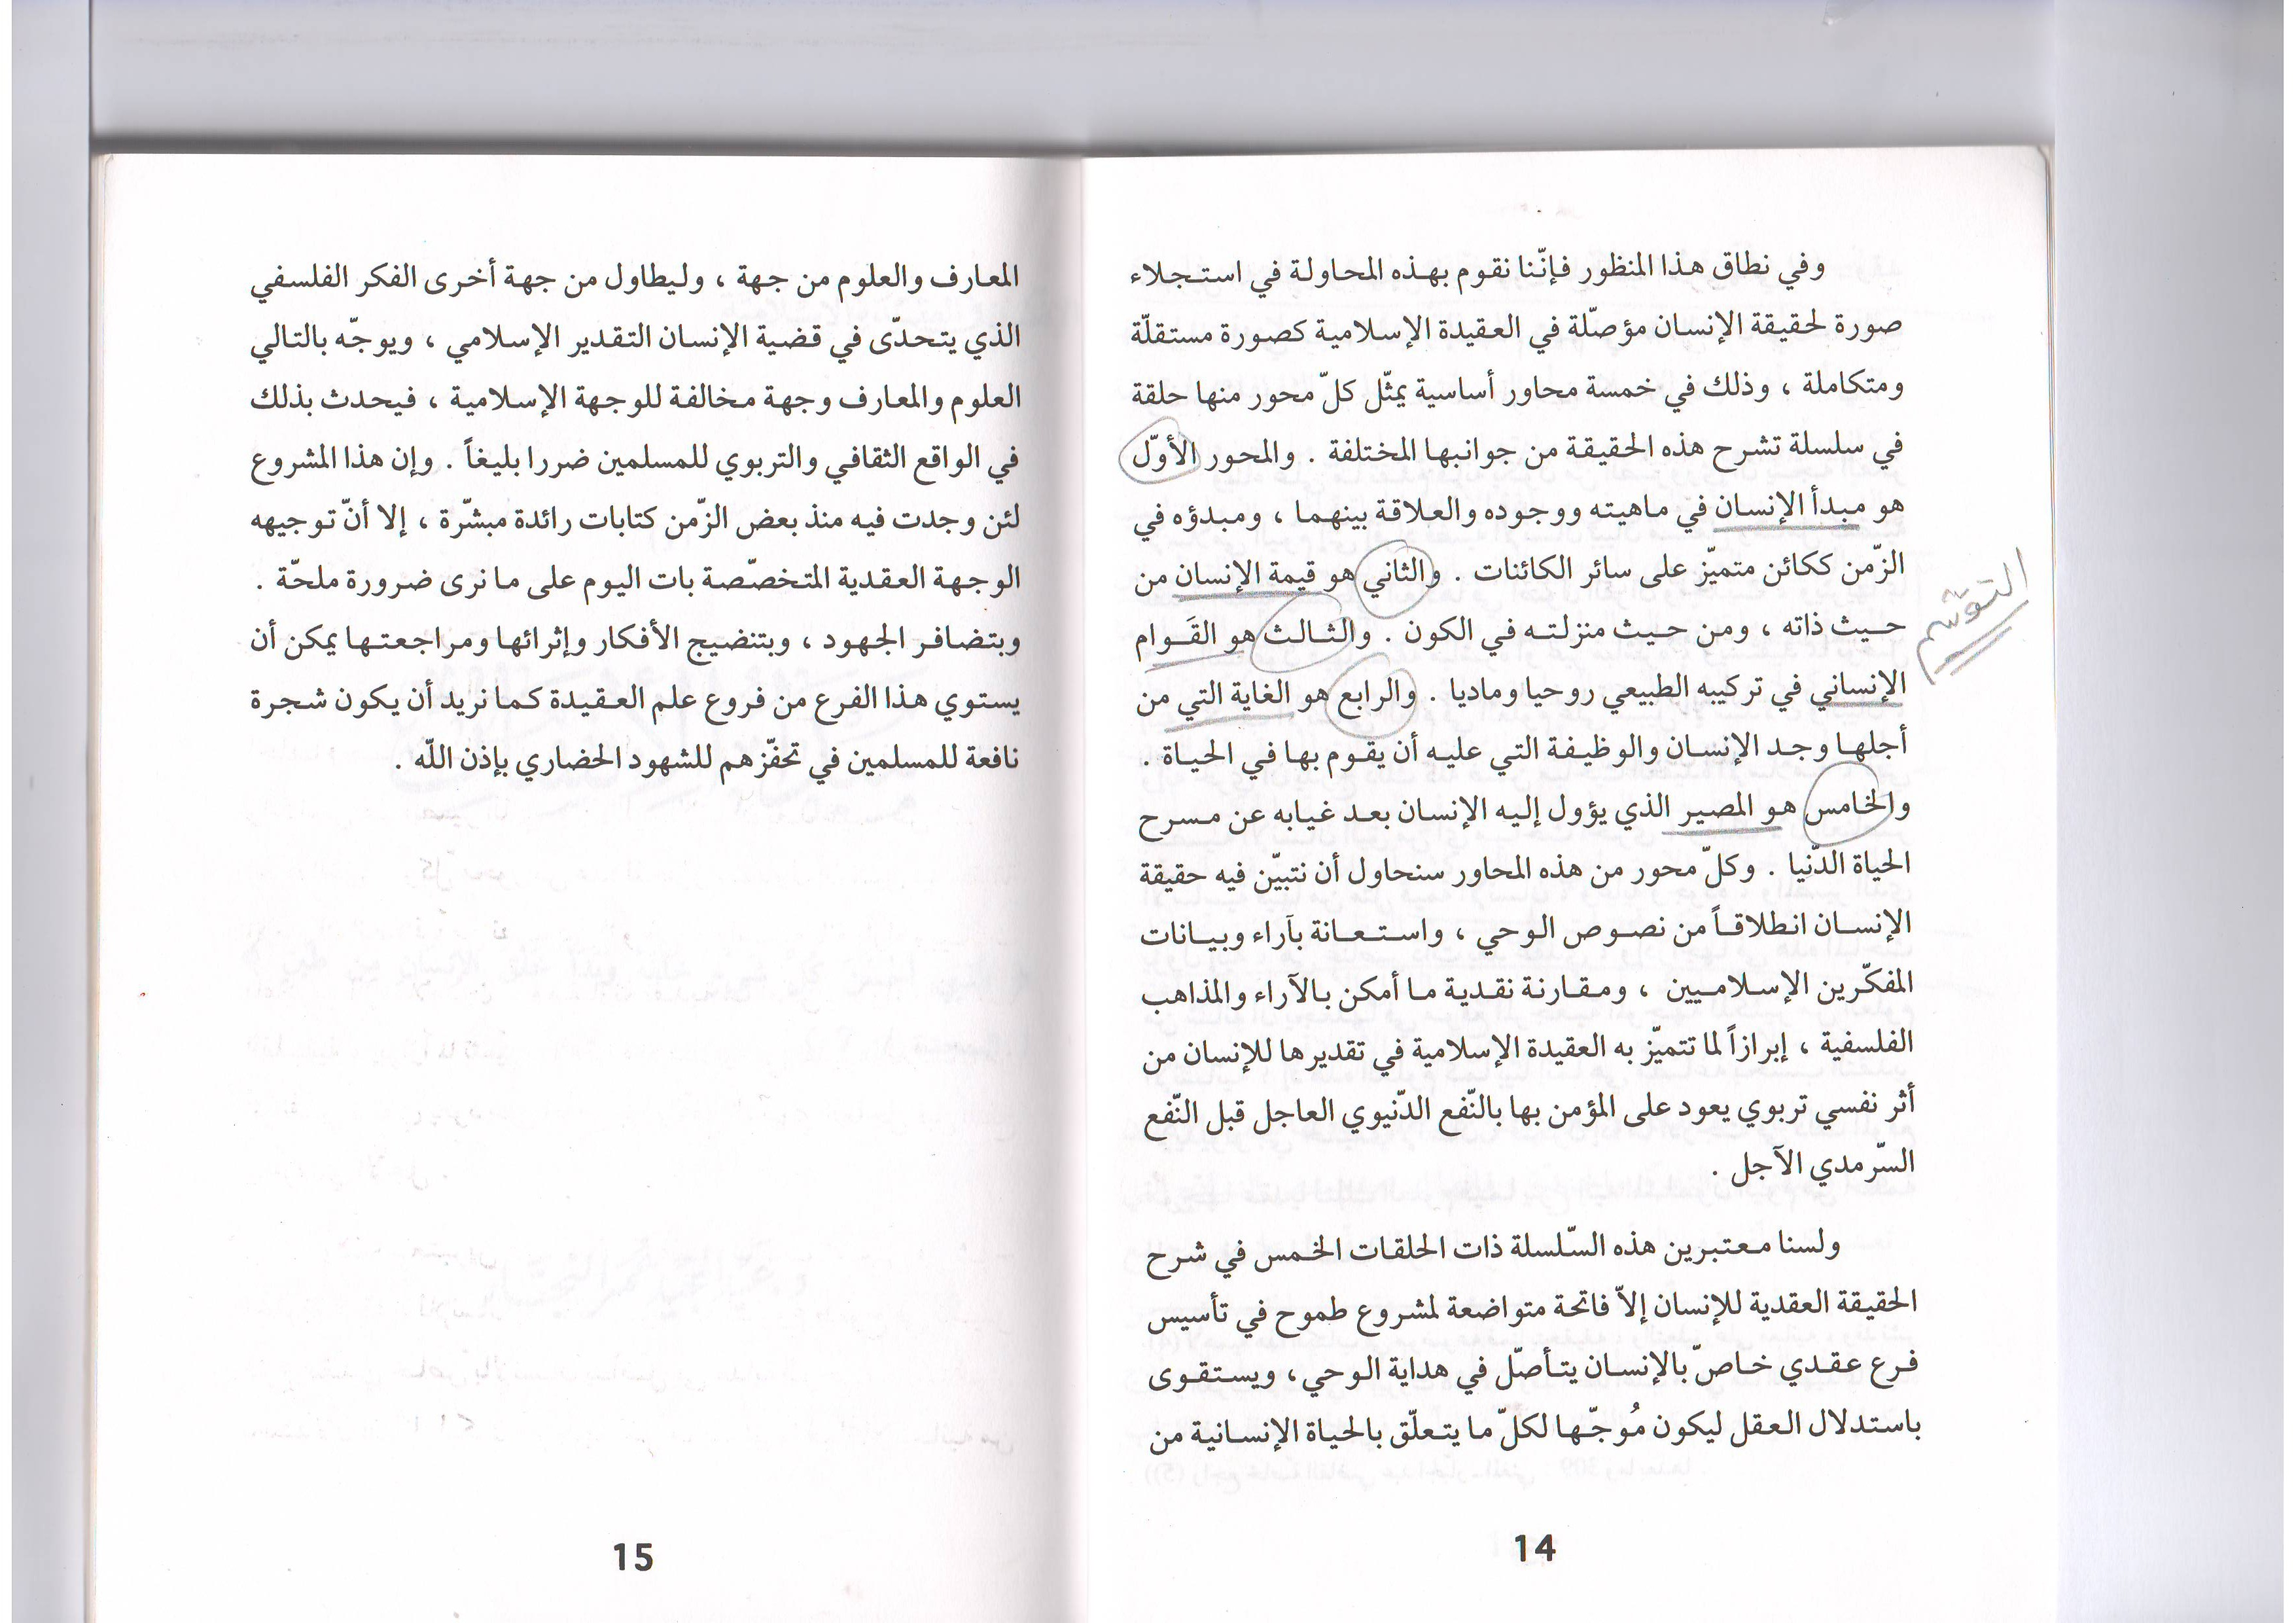 وفي نطاق هذا المنظور فإنّنا نقوم بهذه المحاولة في استجلاء
صورة لحقيقة الإنسان مؤصّلة في العقيدة الإسلامية كصورة مستقلّة
ومتكاملة ، وذلك في خمسة محاور أساسية يمثّل كلّ محور منها حلقة
في سلسلة تشرح هذه الحقيقة من جوانبها المختلفة . والمحور الأوّل
هو مبدأ الإنسان في ماهيته ووجوده والعلاقة بينهما ، ومبدؤه في
الزّمن ككائن متميّز على سائر الكائنات . والثاني هو قيمة الإنسان من
حيث ذاته ، ومن حيث منزلته في الكون . والثالث هو القَوام
الإنساني في تركيبه الطبيعي روحيا وماديا . والرابع هو الغاية التي من
أجلها وجد الإنسان والوظيفة التي عليه أن يقوم بها في الحياة .
والخامس هو المصير الذي يؤول إليه الإنسان بعد غيابه عن مسرح
الحياة الدّنيا . وكلّ محور من هذه المحاور سنحاول أن نتبيّن فيه حقيقة
الإنسان انطلاقاً من نصوص الوحي ، واستعانة بآراء وبيانات
المفكّرين الإسلاميين ، ومقارنة نقدية ما أمكن بالآراء والمذاهب
الفلسفية ، إبرازاً لما تتميّز به العقيدة الإسلامية في تقديرها للإنسان من
أثر نفسي تربوي يعود على المؤمن بها بالنّفع الدّنيوي العاجل قبل النّفع
السّرمدي الآجل .
ولسنا معتبرين هذه السّلسلة ذات الحلقات الخمس في شرح
الحقيقة العقدية للإنسان إلاّ فاتحة متواضعة لمشروع طموح في تأسيس
فرع عقدي خاصّ بالإنسان يتأصّل في هداية الوحي، ويستقوى
باستدلال العقل ليكون مُوجّها لكلّ ما يتعلّق بالحياة الإنسانية من
14
المعارف والعلوم من جهة ، وليطاول من جهة أخرى الفكر الفلسفي
الذي يتحدّى في قضية الإنسان التقدير الإسلامي ، ويوجّه بالتالي
العلوم والمعارف وجهة مخالفة للوجهة الإسلامية ، فيحدث بذلك
في الواقع الثقافي والتربوي للمسلمين ضررا بليغاً . وإن هذا المشروع
لئن وجدت فيه منذ بعض الزّمن كتابات رائدة مبشّرة ، إلا أنّ توجيهه
الوجهة العقدية المتخصّصة بات اليوم على ما نرى ضرورة ملحّة .
وبتضافر الجهود ، وبتنضيج الأفكار وإثرائها ومراجعتها يمكن أن
يستوي هذا الفرع من فروع علم العقيدة كما نريد أن يكون شجرة
نافعة للمسلمين في تحفّزهم للشهود الحضاري بإذن اللّه .
15